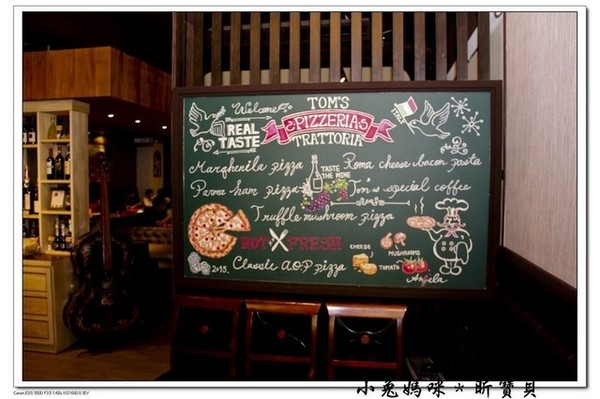 Welcome
TOM'S
PIZZERIAS
TRATTORIA
REAL
TASTE
Marghenila pizza
Roma cheese bacon pasta
TASTE
THE WINE
Parma ham pizza
Tom's special coffee
Truffle mushroom pizza
HOT
FRESH
CHEESE
MUSHROOMS
TOMATO
2015.
Classic A.O.P pizza
Angela
小兔媽咪*昕寶貝